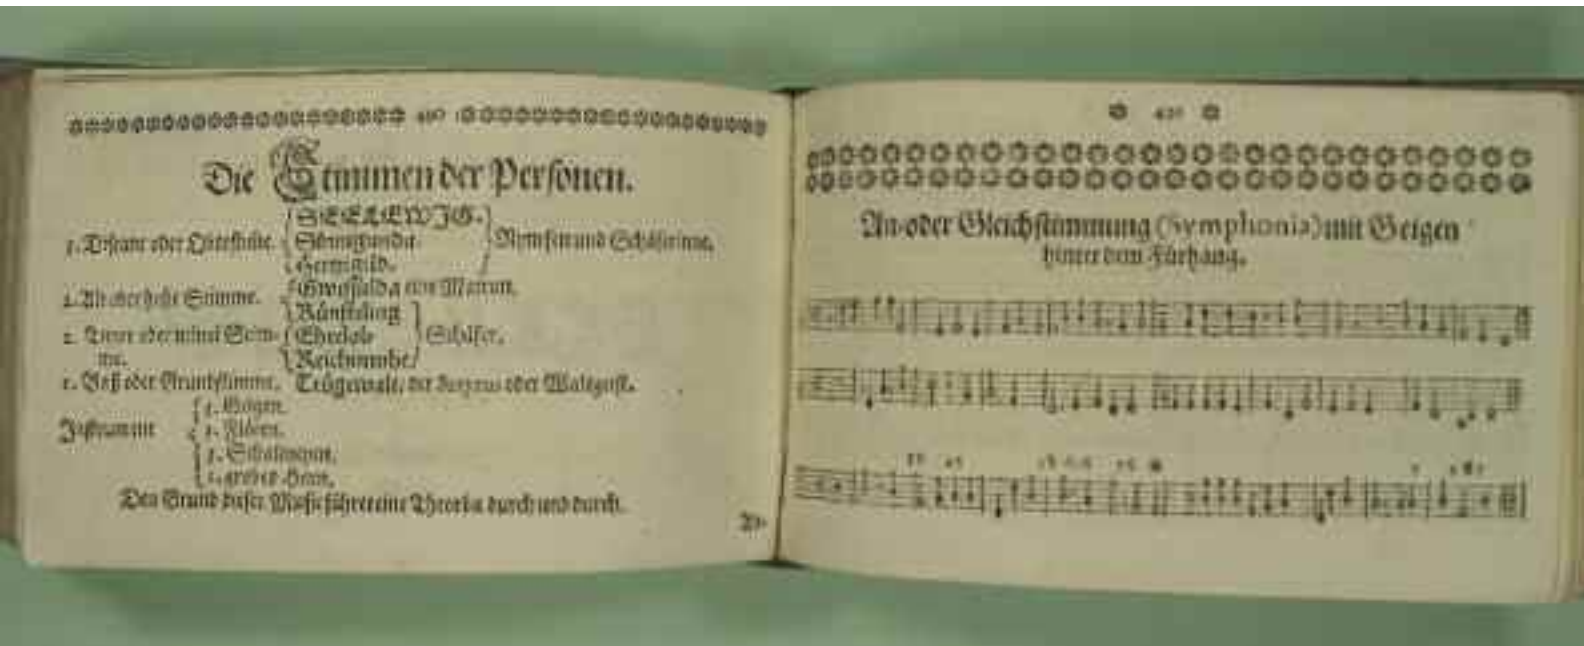 490
Die Stimmen der Personen.
3. Discant oder Oberstimme. SEELEWIG. Sinnigunda. Hertzigild. Nymfen und Schäferinne.
1. Alt oder hohe Stimme. Gwissulda eine Matron.
Künsteling
Ehrelob Schäfer.
Reichmuhe
1. Baß oder Grundstimme. Trügewalt, der oder Waldgeist.
Instrument
3. Geigen.
3. Flöten.
3. Schalmeyen.
1. grobes Horn.
Den Grund dieser Music führet eine Theorba durch und durch.
An-
491
An-oder Gleichstimmung (Symphonia) mit Geigen
hinter dem Fürhang.